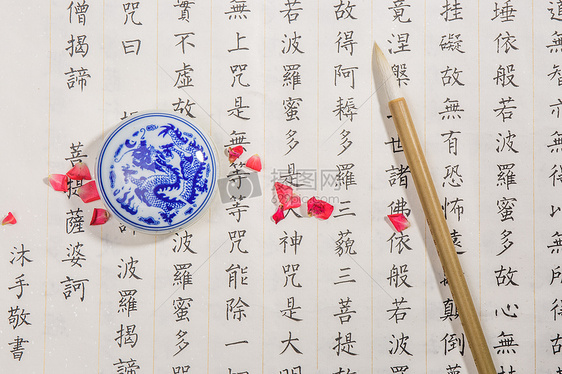 道無智亦無得以無所得
埵依般若波羅蜜多故心無
挂礙故無有恐怖遠顛倒
竟涅槃三世諸佛依般若波
故得阿耨多羅三藐三菩提故
若波羅蜜多是大神咒是大
無上咒是無等等咒能除一
實不虛故波羅蜜多
咒曰 波羅揭諦
僧揭諦 菩提薩婆訶
沐手敬書
摄图网